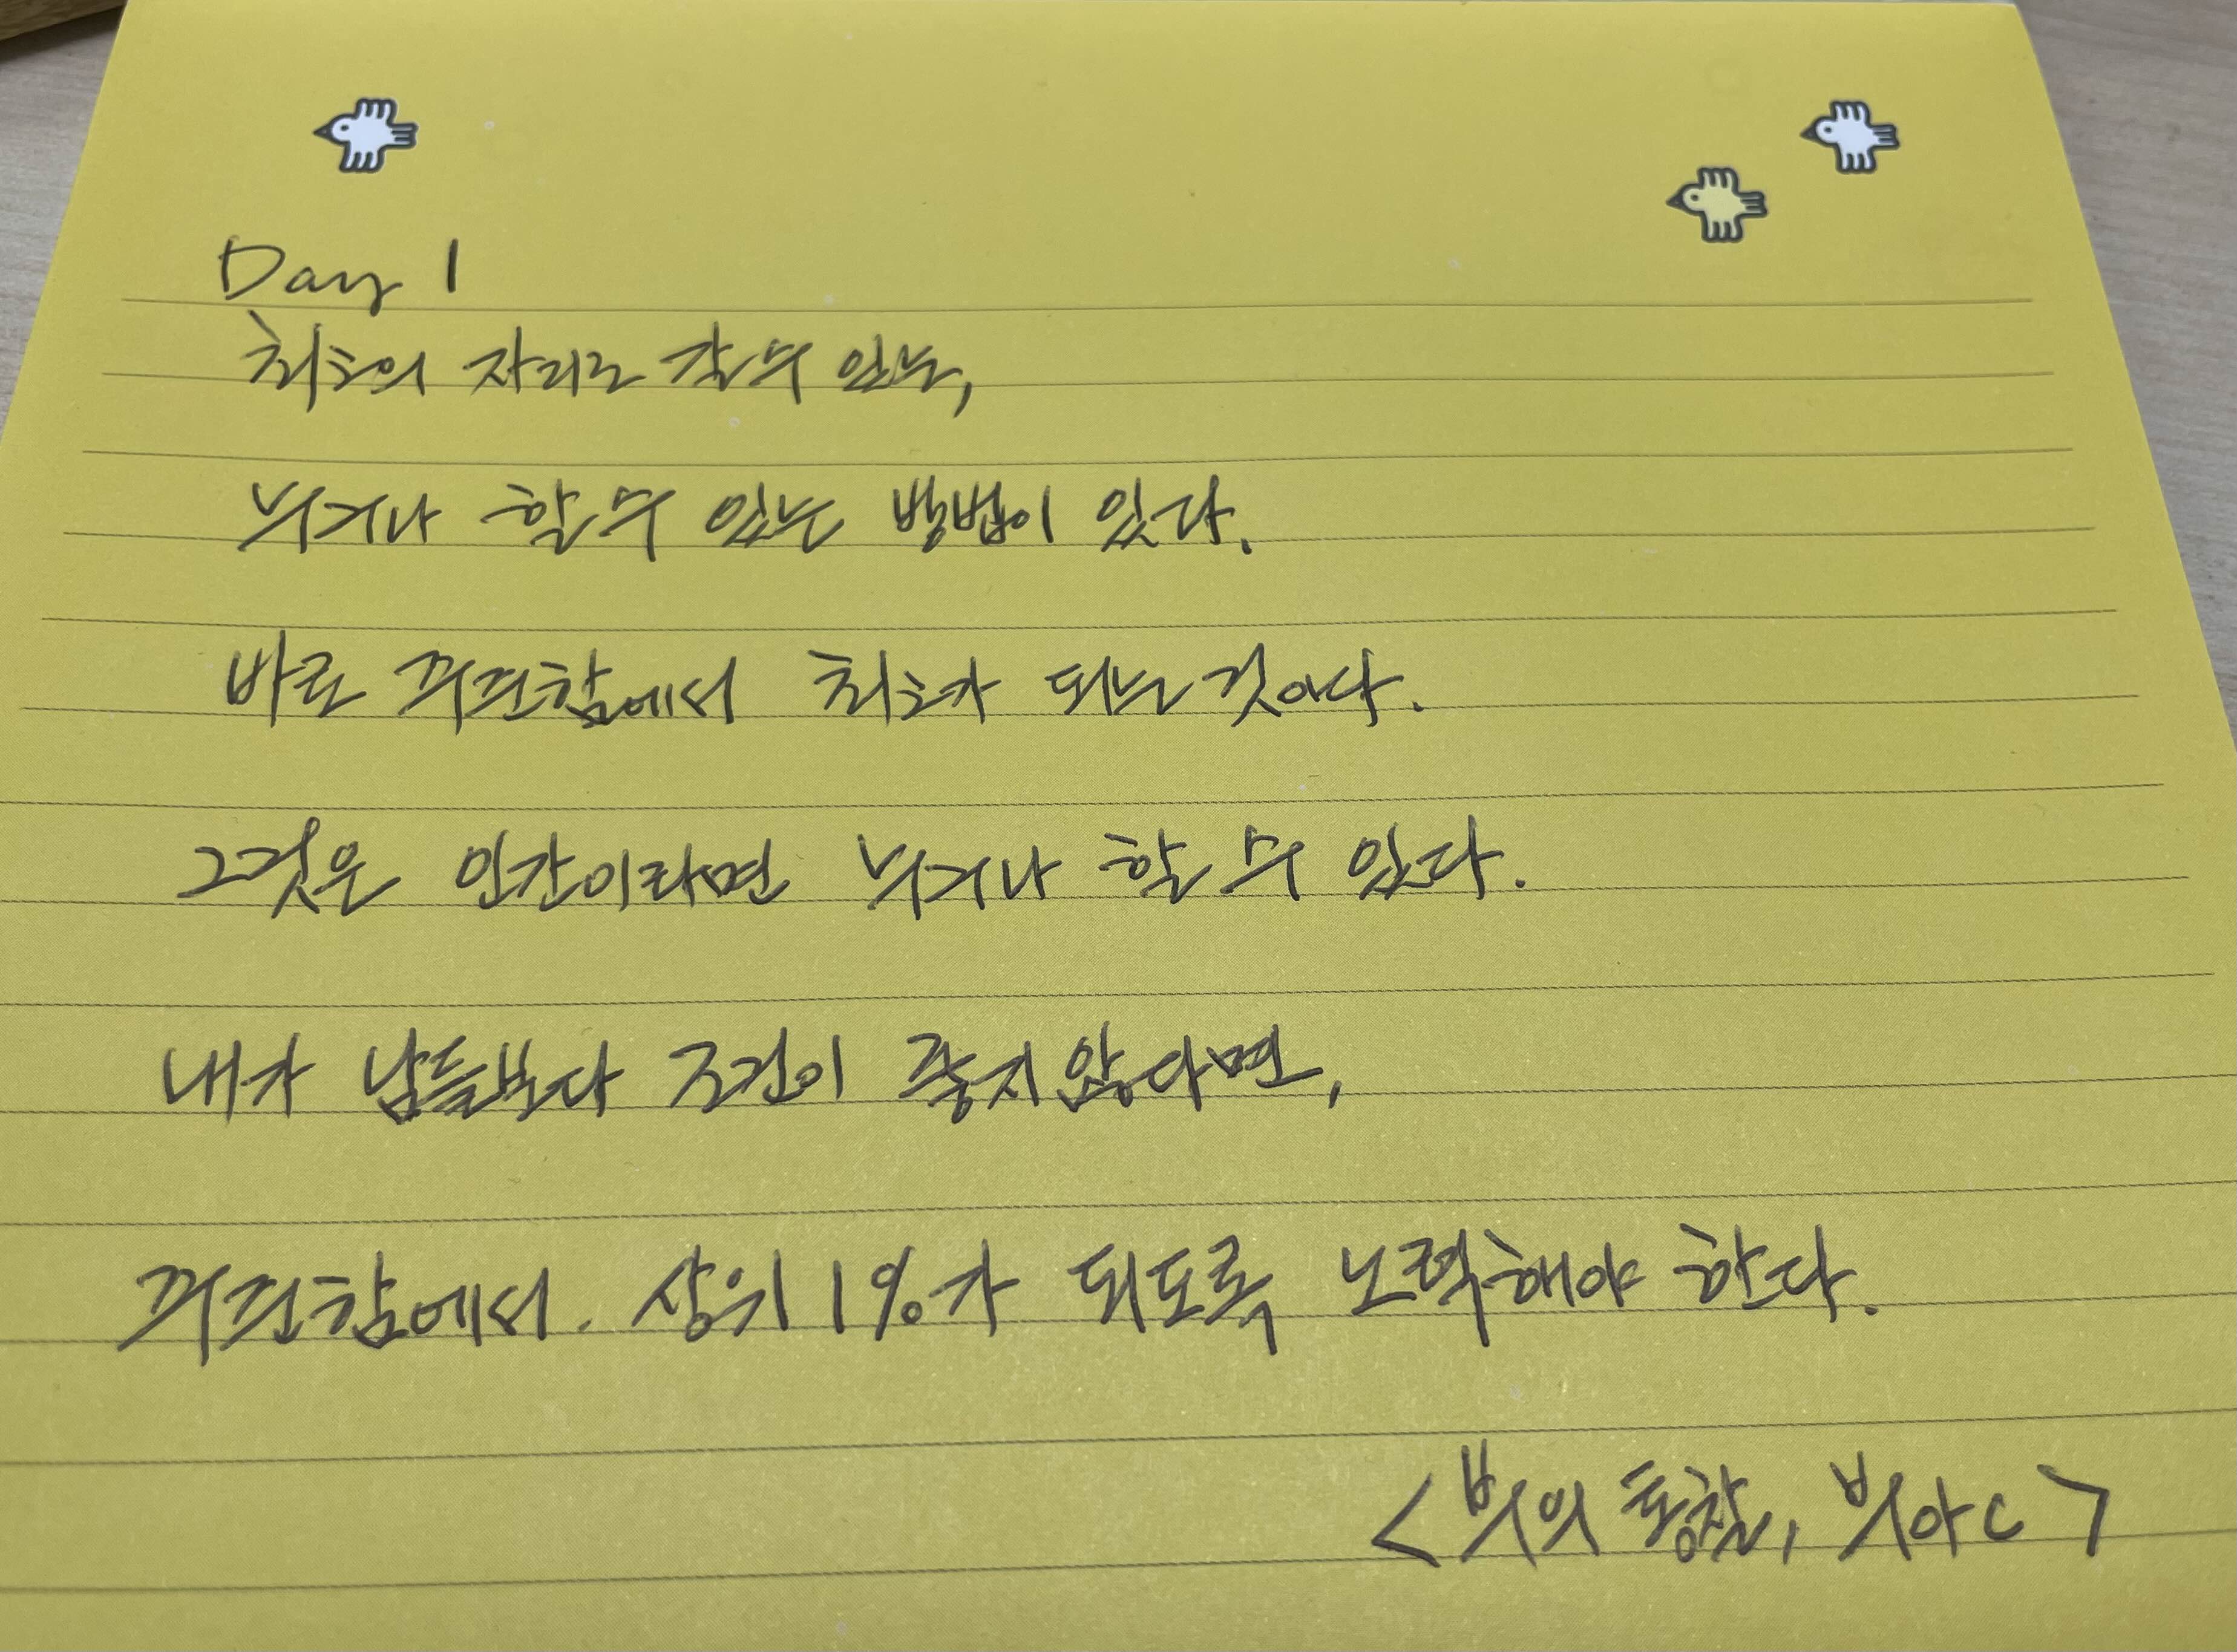 Day 1
최초의 자리로 갈 수 있는,
누구나 할 수 있는 방법이 있다.
바로 꾸준함에서 최초가 되는 것이다.
그것은 인간이라면 누구나 할 수 있다.
내가 남들보다 조건이 좋지 않다면,
꾸준함에서 상위 1%가 되도록 노력해야 한다.
<부의 통찰, 부아c>